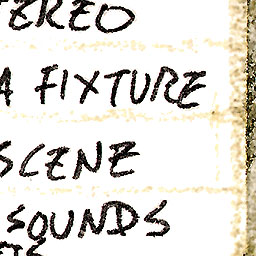 TEREO
A FIXTURE
SCENE
SOUNDS